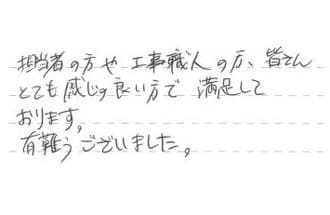 担当者の方や 工事職人の方、皆さん
とても感じの良い方で 満足して
おります。
有難うございました。